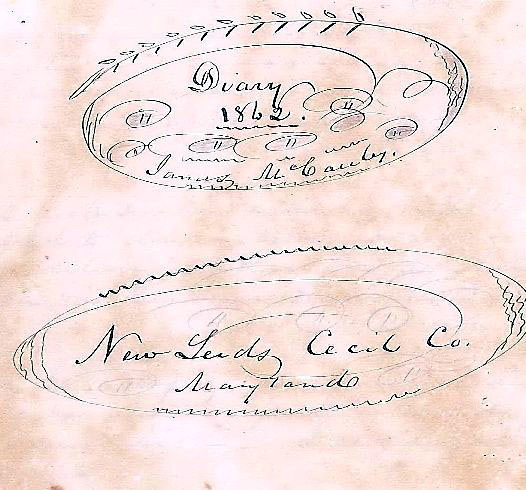 Diary
1862.
James McCauley.
New Leeds, Cecil Co.
Maryland